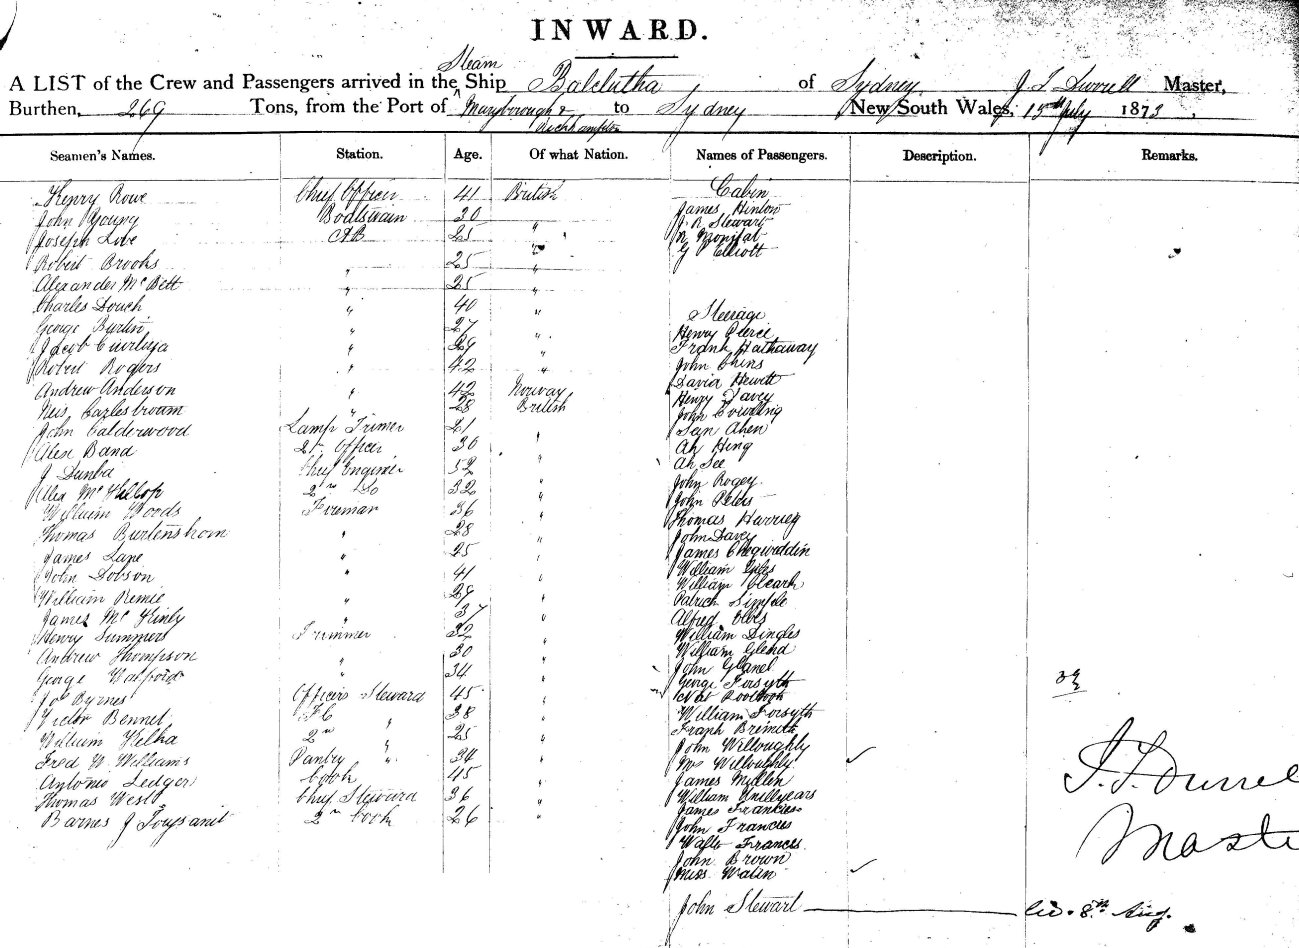 INWARD.
Steam
A LIST of the Crew and Passengers arrived in the Ship Balclutha of Sydney, J T Durrell Master,
Burthen, 269 Tons, from the Port of Maryborough & to Sydney New South Wales, 15th July 1873,
Rockhampton
Seamen's Names. Station. Age. Of what Nation. Names of Passengers. Description. Remarks.
Henry Rowe Chief Officer 41 British Cabin
John Young Boatswain 30 " James Hinton
Joseph Love AB 25 " Stewart
Robert Brooks " 25 " G Elliott
Alexander McBett " 25 "
Charles Douch " 40 " Steerage
George Burton " 27 " Henry Pierce
Jacob " 29 " Frank Hathaway
Robert Rogers " 42 " John
Andrew Anderson " 42 Norway David Hewett
Neis Carlesbroum " 28 British Henry Davey
John Calderwood Lamp Trimer 21 " John Cowling
Alex Band 2nd Officer 30 " San Ahen
J Dunba Chief Engineer 52 " Ah Hing
Alex McKillop 2nd Do 32 " Ah See
William Woods Fireman 36 " John Rogey
Thomas Burtenshom " 28 " John Peters
James Lane " 25 " Thomas Harrieg
John Dobson " 41 " John Davey
William Remie " 29 " James Chegwiddin
James McKinly " 37 " William
Henry Summers Trimmer 32 " William
Andrew Thompson " 30 " Patrick Simple
George Watford " 34 " Alfred
Jos Byrnes Officers Steward 45 " William Dingles
Victor Bennet FC " 38 " William Glend
William Kelka 2nd " 25 " John Glanel
Fred W Williams Pantry " 34 " George Forsyth
Antonio Ledger Cook 45 " William Forsyth
Thomas West Chief Steward 36 " Frank
Barnes J Tousanit 2nd Cook 26 " John Willoughly
Mrs Willoughly
James Millen
William
James Francies
John Francies
Walter Francis
John Brown
Miss Watin
John Stewart
8th Aug.
J. T. Durrel
Maste